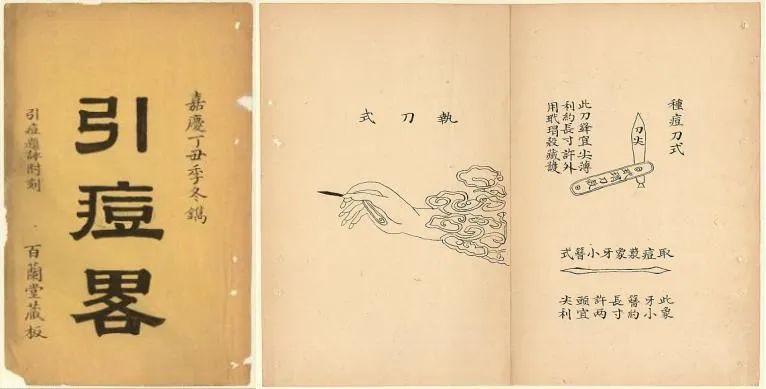 嘉慶丁丑季冬鐫
引痘畧
引痘題詠附刻
百蘭堂藏板
種痘刀式
刀尖
玳瑁殼
此刀鋒宜尖薄
利約長寸許外
用玳瑁殼藏護
取痘漿象牙小簪式
此象
牙小
簪約
長寸
許两
頭宜
尖利
執刀式